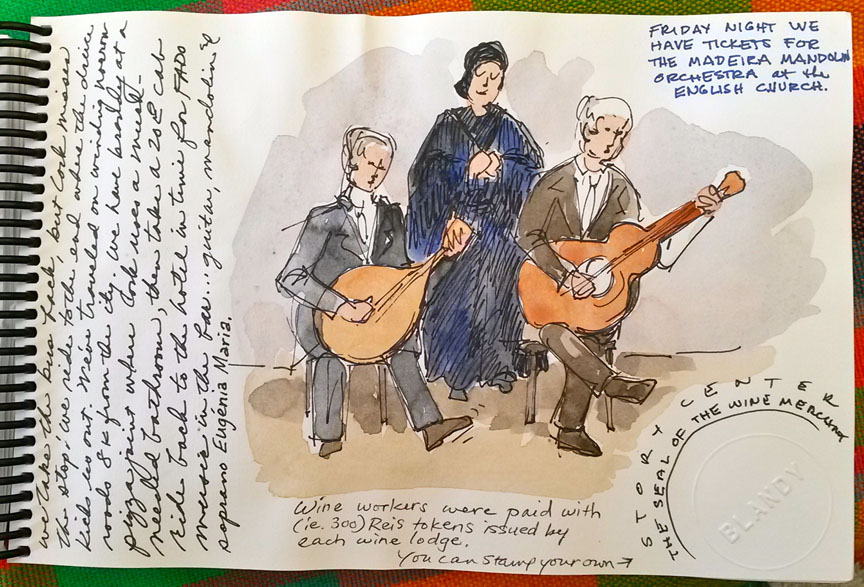 we take the bus back, but misses
the stop! We ride to the end where the
kicks us out. We've traveled on winding narrow
roads 8K from the city. We have brandy at a
pizza joint where uses a much-
needed bathroom, then take a 20€ cab
ride back to the hotel in time for FADO
music in the bar... guitar, mandolin &
soprano Eugenia Maria.
FRIDAY NIGHT WE
HAVE TICKETS FOR
THE MADEIRA MANDOLIN
ORCHESTRA at the
ENGLISH CHURCH.
Wine workers were paid with
(ie. 300) Reis tokens issued by
each wine lodge.
You can stamp your own →
STORY CENTER
THE SEAL OF THE WINE MERCHANT
BLANDY